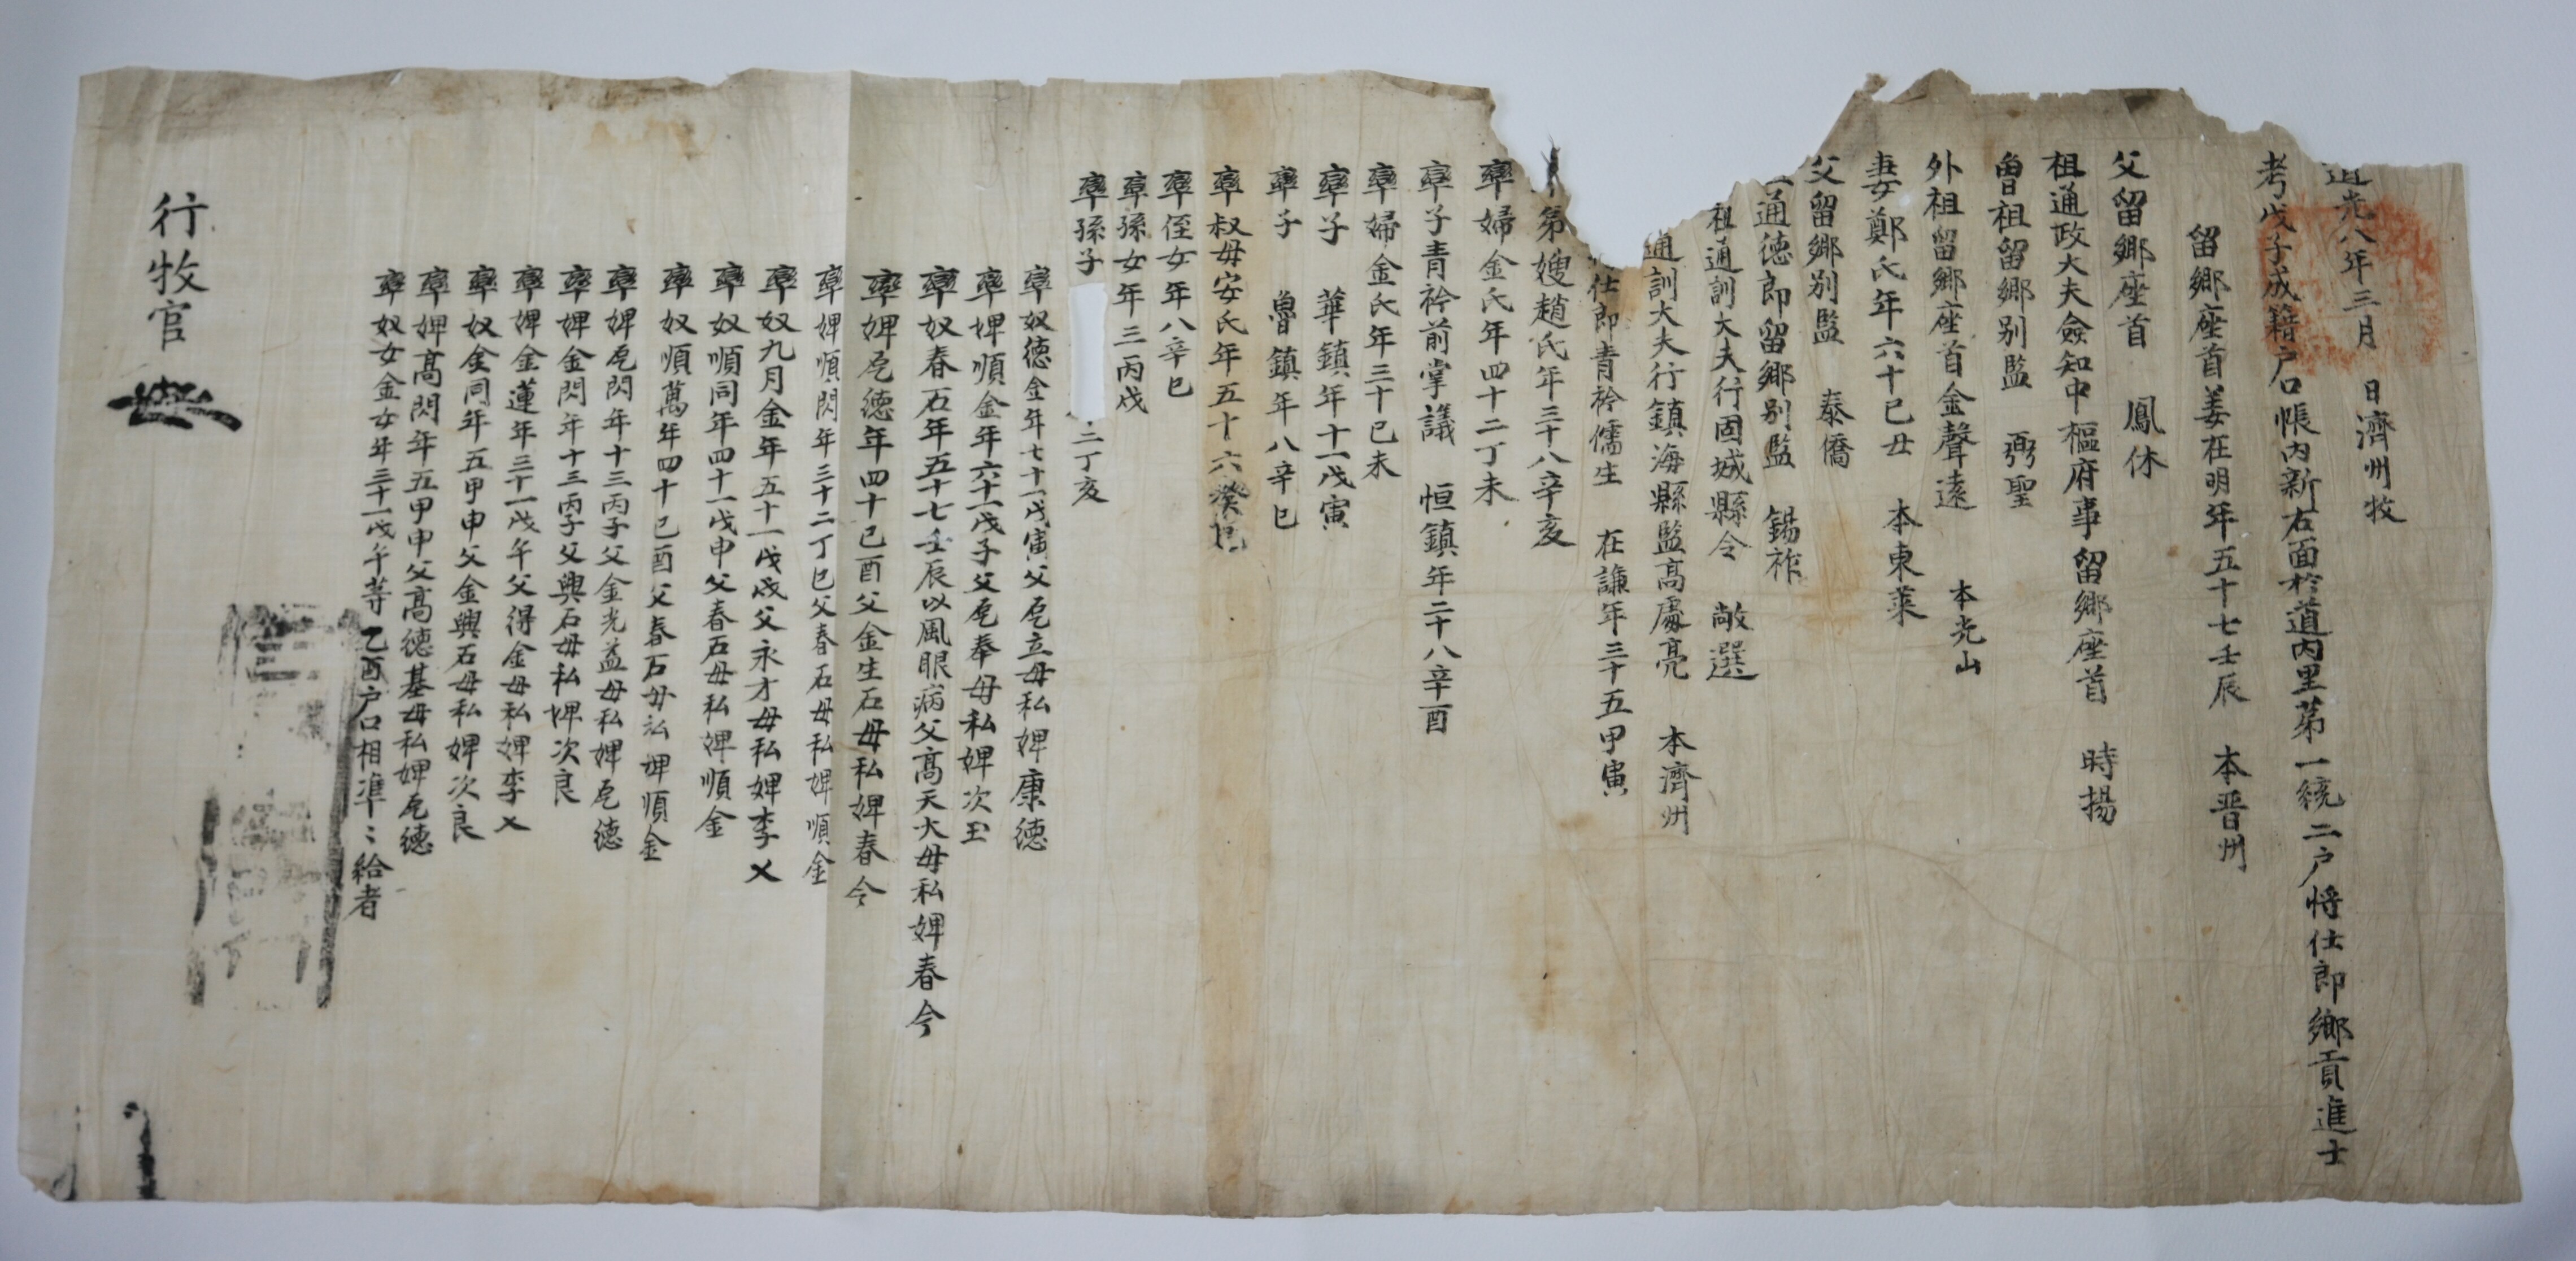 道光八年三月 日濟州牧
考戊子成籍户口帳內新右面於道內里第一統二户將仕郎鄉貢進士
留鄉座首姜在明年五十七壬辰 本晋州
父留鄉座首 鳳休
祖通政大夫僉知中樞府事留鄉座首 時揚
曾祖留鄉别監 弼聖
外祖留鄉座首金聲遠 本光山
妻鄭氏年六十己丑 本東萊
父留鄉别監 泰僑
通德郎留鄉别監 錫祚
祖通訓大夫行固城縣令 敞選
通訓大夫行鎮海縣監高處亮 本濟州
仕郎青衿儒生 在謙年三十五甲寅
弟嫂趙氏年三十八辛亥
率婦金氏年四十二丁未
率子青衿前掌議 恒鎮年二十八辛酉
率婦金氏年三十己未
率子 華鎮年十一戊寅
率子 魯鎮年八辛巳
率叔母安氏年五十六癸巳
率侄女年八辛巳
率孫女年三丙戌
率孫子 二丁亥
率奴德金年七十一戊寅父乭立母私婢康德
率婢順金年六十一戊子父乭奉母私婢次玉
率奴春石年五十七壬辰以風眼病父高天大母私婢春今
率婢乭德年四十己酉父金生石母私婢春今
率婢順閃年三十二丁巳父春石母私婢順金
率奴九月金年五十一戊戌父永才母私婢李乂
率奴順同年四十一戊申父春石母私婢順金
率奴順萬年四十己酉父春石母私婢順金
率婢乭閃年十三丙子父金光益母私婢乭德
率婢金閃年十三丙子父興石母私婢次良
率婢金蓮年三十一戊午父得金母私婢李乂
率奴金同年五甲申父金興石母私婢次良
率婢高閃年五甲申父高德基母私婢乭德
率奴女金女年三十一戊午等乙酉户口相準〻給者
行牧官